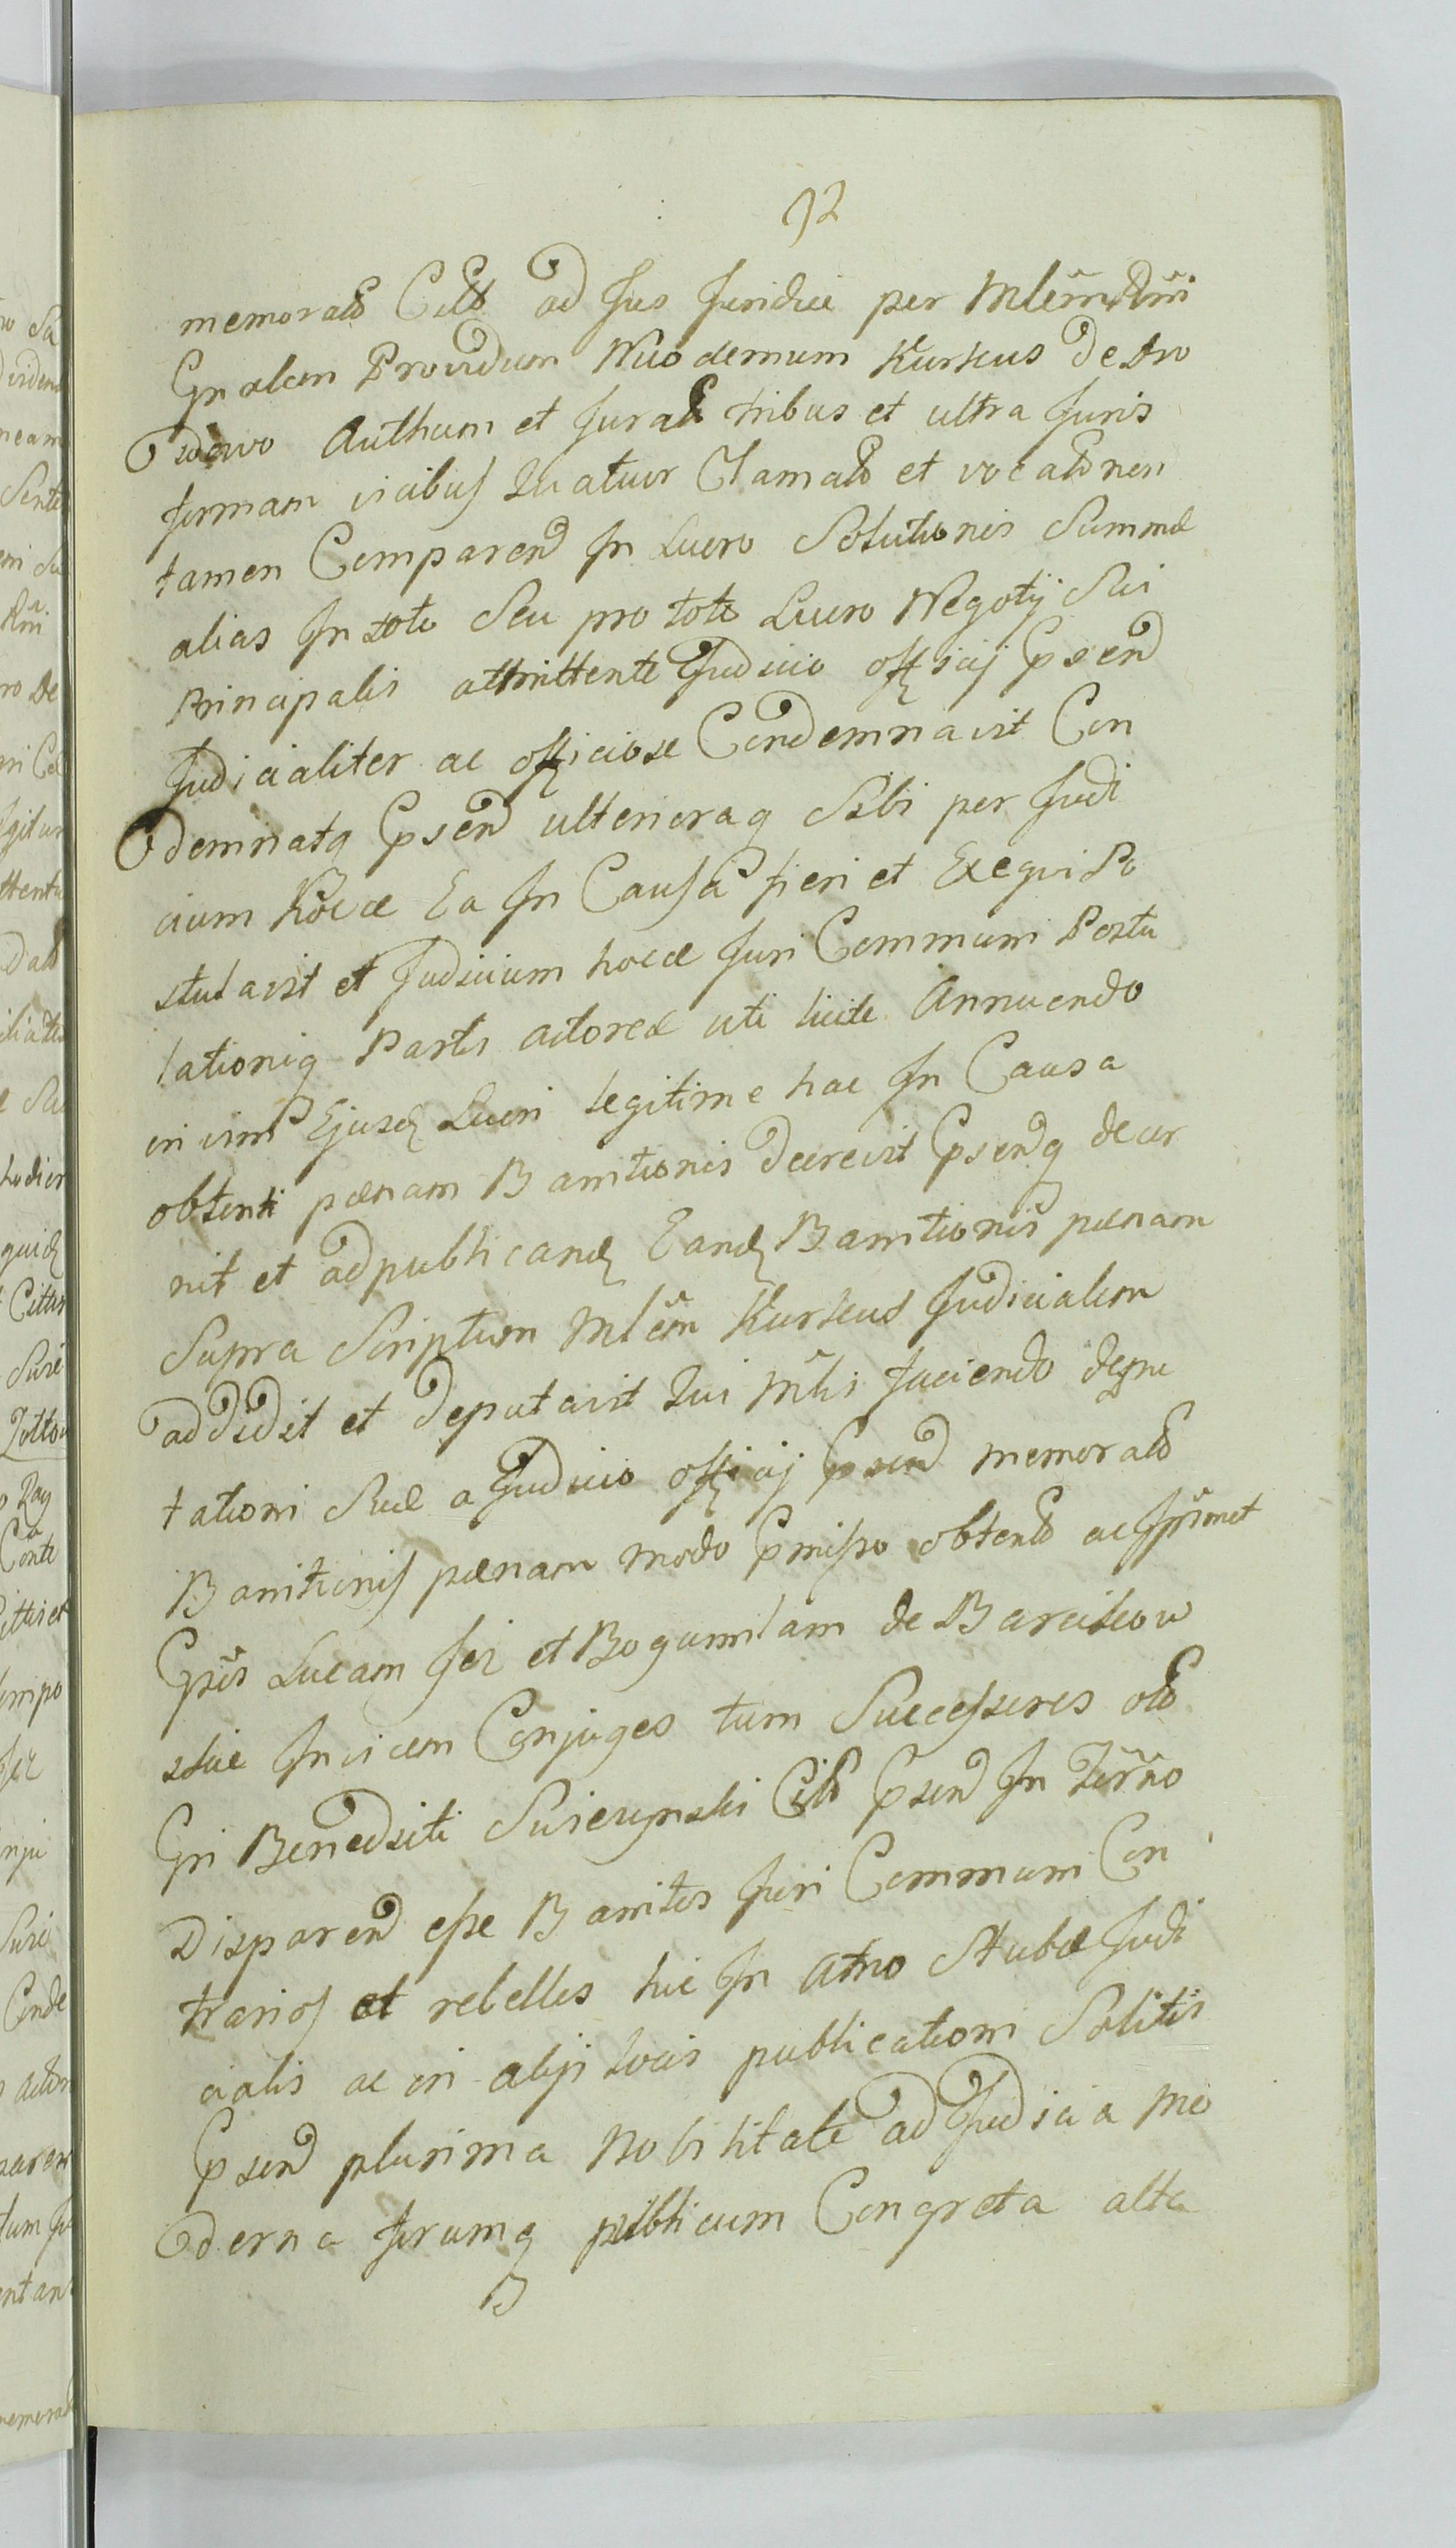 92
memorato Citto ad Jus Juridice per Mlem Rni
Gnalem Providum Nicodemum Kurkus de Dro
zdowo Authum et Jurat tribus et ultra Juris
formam vicibus Quatuor Clamato et vocato non
tamen Comparen In Lucro Solutionis Summæ
alias In toto Seu pro toto Lucro Negotij Sui
Principalis attrittente Judicio officij Psen
Judicialiter ac officiose Condemnavit Con
demnatq Psen ulterioraq Sibi per Judi
cium hocce Ea In Causa fieri et Exequi Po
stulavit et Judicium hocce Juri Communi Postu
lationiq Partis actoreæ uti licite Annuendo
in vim Ejusd Lucri legitime hac In Causa
obtenti pænam Banitionis decrevit Psenq decer
nit et ad publicand Eand Banitionis pænam
Supra Scriptum Mlem Kurkus Judicialem
addidit et deputavit Qui Mlis faciendo depu
tationi Suæ a Judicio officij Psen memorato
Banitionis pænam modo Pmisso obtento ac Ipsimet
Gsos Lucam et Bogumilam de Barcikow
skie Invicem Conjuges tum Successores olo
Gsi Benedicti Citto Psen In Termo
Disparen esse Banitos Juri Communi Con
trarios et rebelles hic In Atrio Stubæ Judi
cialis ac in alijs locis publicationi Solitis
Psen plurima Nobilitate ad Judicia Mo
derna forumq publicum Congreta alta